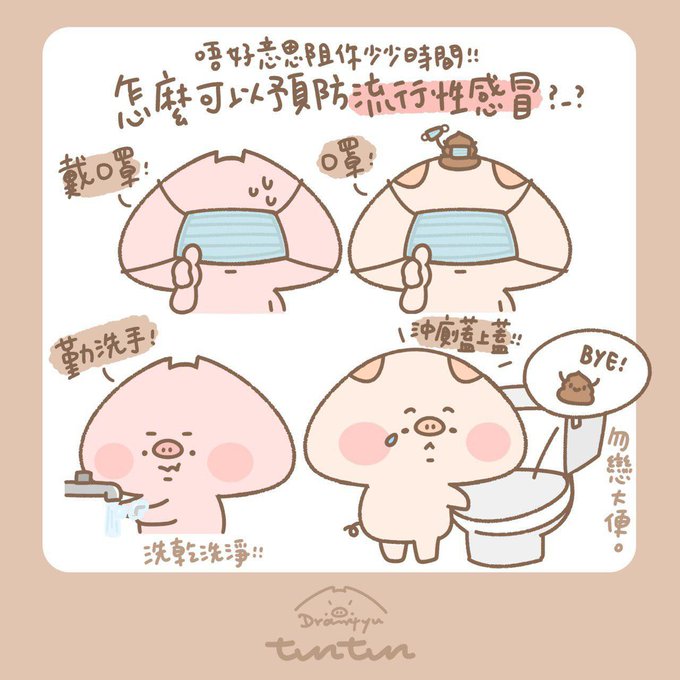 唔好意思阻你少少時間!!
怎麼可以預防流行性感冒?_?
戴口罩!
口罩!
勤洗手!
洗乾洗淨!!
沖廁蓋上蓋!!
BYE!
勿戀大便。
Dramiyu
tintin